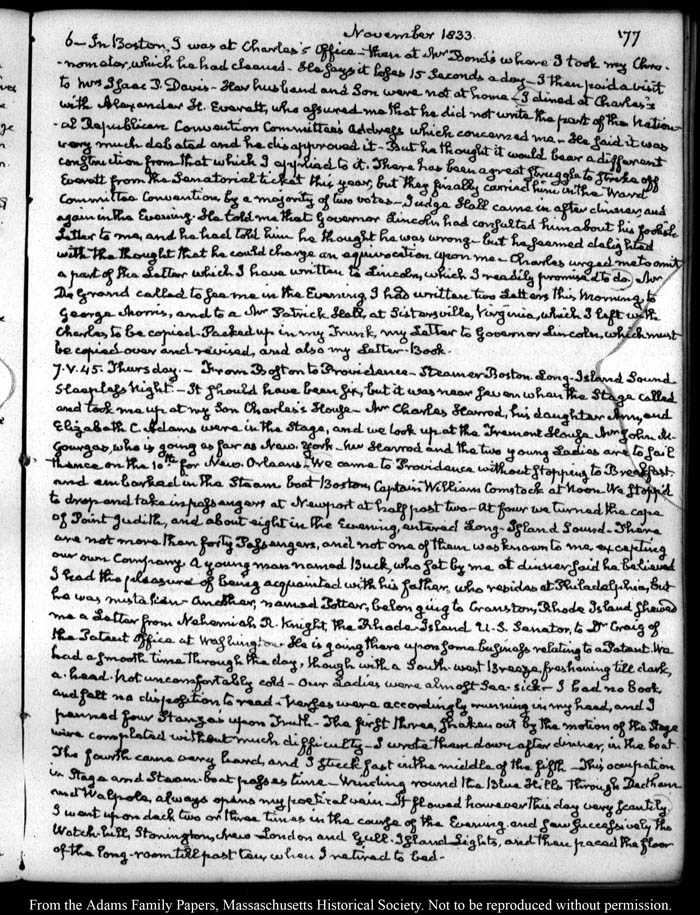 November 1833.
177
6 - In Boston, I was at Charles's Office - then at Mr Bond's where I took my Chro-
-nometer, which he had cleaned - He says it loses 15 Seconds a day - I then paid a visit
to Mrs Isaac P. Davis - Her husband and Son were not at home - I dined at Charles's
with Alexander H. Everett, who assured me that he did not write the part of the Nation-
-al Republican Convention Committee's Address which concerned me - He said it was
very much debated and he disapproved it - But he thought it would bear a different
construction from that which I applied to it. There has been a great struggle to strike off
Everett from the Senatorial ticket this year, but they finally carried him in the Ward
Committee Convention by a majority of two votes - Judge Hall came in after dinner, and
again in the Evening. He told me that Governor Lincoln had consulted him about his foolish
Letter to me, and he had told him he thought he was wrong - but he seemed delighted
with the thought that he could charge an equivocation upon me - Charles urged me to omit
a part of the Letter which I have written to Lincoln, which I readily promised to do. Mr
De Grand called to see me in the Evening. I had written two Letters this Morning, to
George Morris, and to a Mr Patrick Hall, at Sistersville, Virginia, which I left with
Charles to be copied - Packed up in my Trunk, my Letter to Governor Lincoln, which must
be copied over and revised, and also my Letter-Book.
7. V. 45. Thursday. - From Boston to Providence - Steamer Boston Long-Island Sound
Sleepless Night - It should have been six, but it was near seven when the Stage called
and took me up at my Son Charles's House - Mr Charles Harrod, his daughter Ann, and
Elizabeth C. Adams were in the Stage, and we took up at the Tremont House Mr John M-
Gourgas, who is going as far as New York - Mr Harrod and the two young Ladies are to sail
thence on the 10th for New Orleans - We came to Providence without stopping to Breakfast,
and embarked in the Steam boat Boston, Captain William Comstock at Noon - We stopp'd
to drop and take in passengers at Newport at half past two - At four we turned the cape
of Point Judith, and about eight in the Evening, entered Long-Island Sound - There
are not more than forty Passengers, and not one of them was known to me, excepting
our own Company. A young man named Buck, who sat by me at dinner said he believed
I had the pleasure of being acquainted with his father, who resides at Philadelphia, but
he was mistaken - Another, named Potter, belonging to Cranston, Rhode Island shewed
me a Letter from Nehemiah R. Knight, the Rhode-Island U.S. Senator, to Dr Craig of
the Patent Office at Washington - He is going there upon some business relating to a Patent. We
had a smooth time through the day, though with a South-west Breeze, freshening till dark,
a-head. Not uncomfortably cold - Our Ladies were almost Sea-sick - I had no book
and felt no disposition to read - Verses were accordingly running in my head, and I
penned four Stanzas upon Truth - The first three, shaken out by the motion of the Stage
were completed without much difficulty - I wrote them down after dinner, in the boat.
The fourth came very hard, and I stuck fast in the middle of the fifth - This occupation
in Stage and Steam-boat passes time - Winding round the Blue Hills through Dedham
and Walpole, always opens my poetical vein - It flowed however this day very scantily.
I went upon deck two or three times in the course of the Evening and saw successively the
Watch-hill, Stonington, New London and Gull-Island Lights, and then paced the floor
of the long-room till past ten, when I retired to bed -
From the Adams Family Papers, Massachusetts Historical Society. Not to be reproduced without permission.